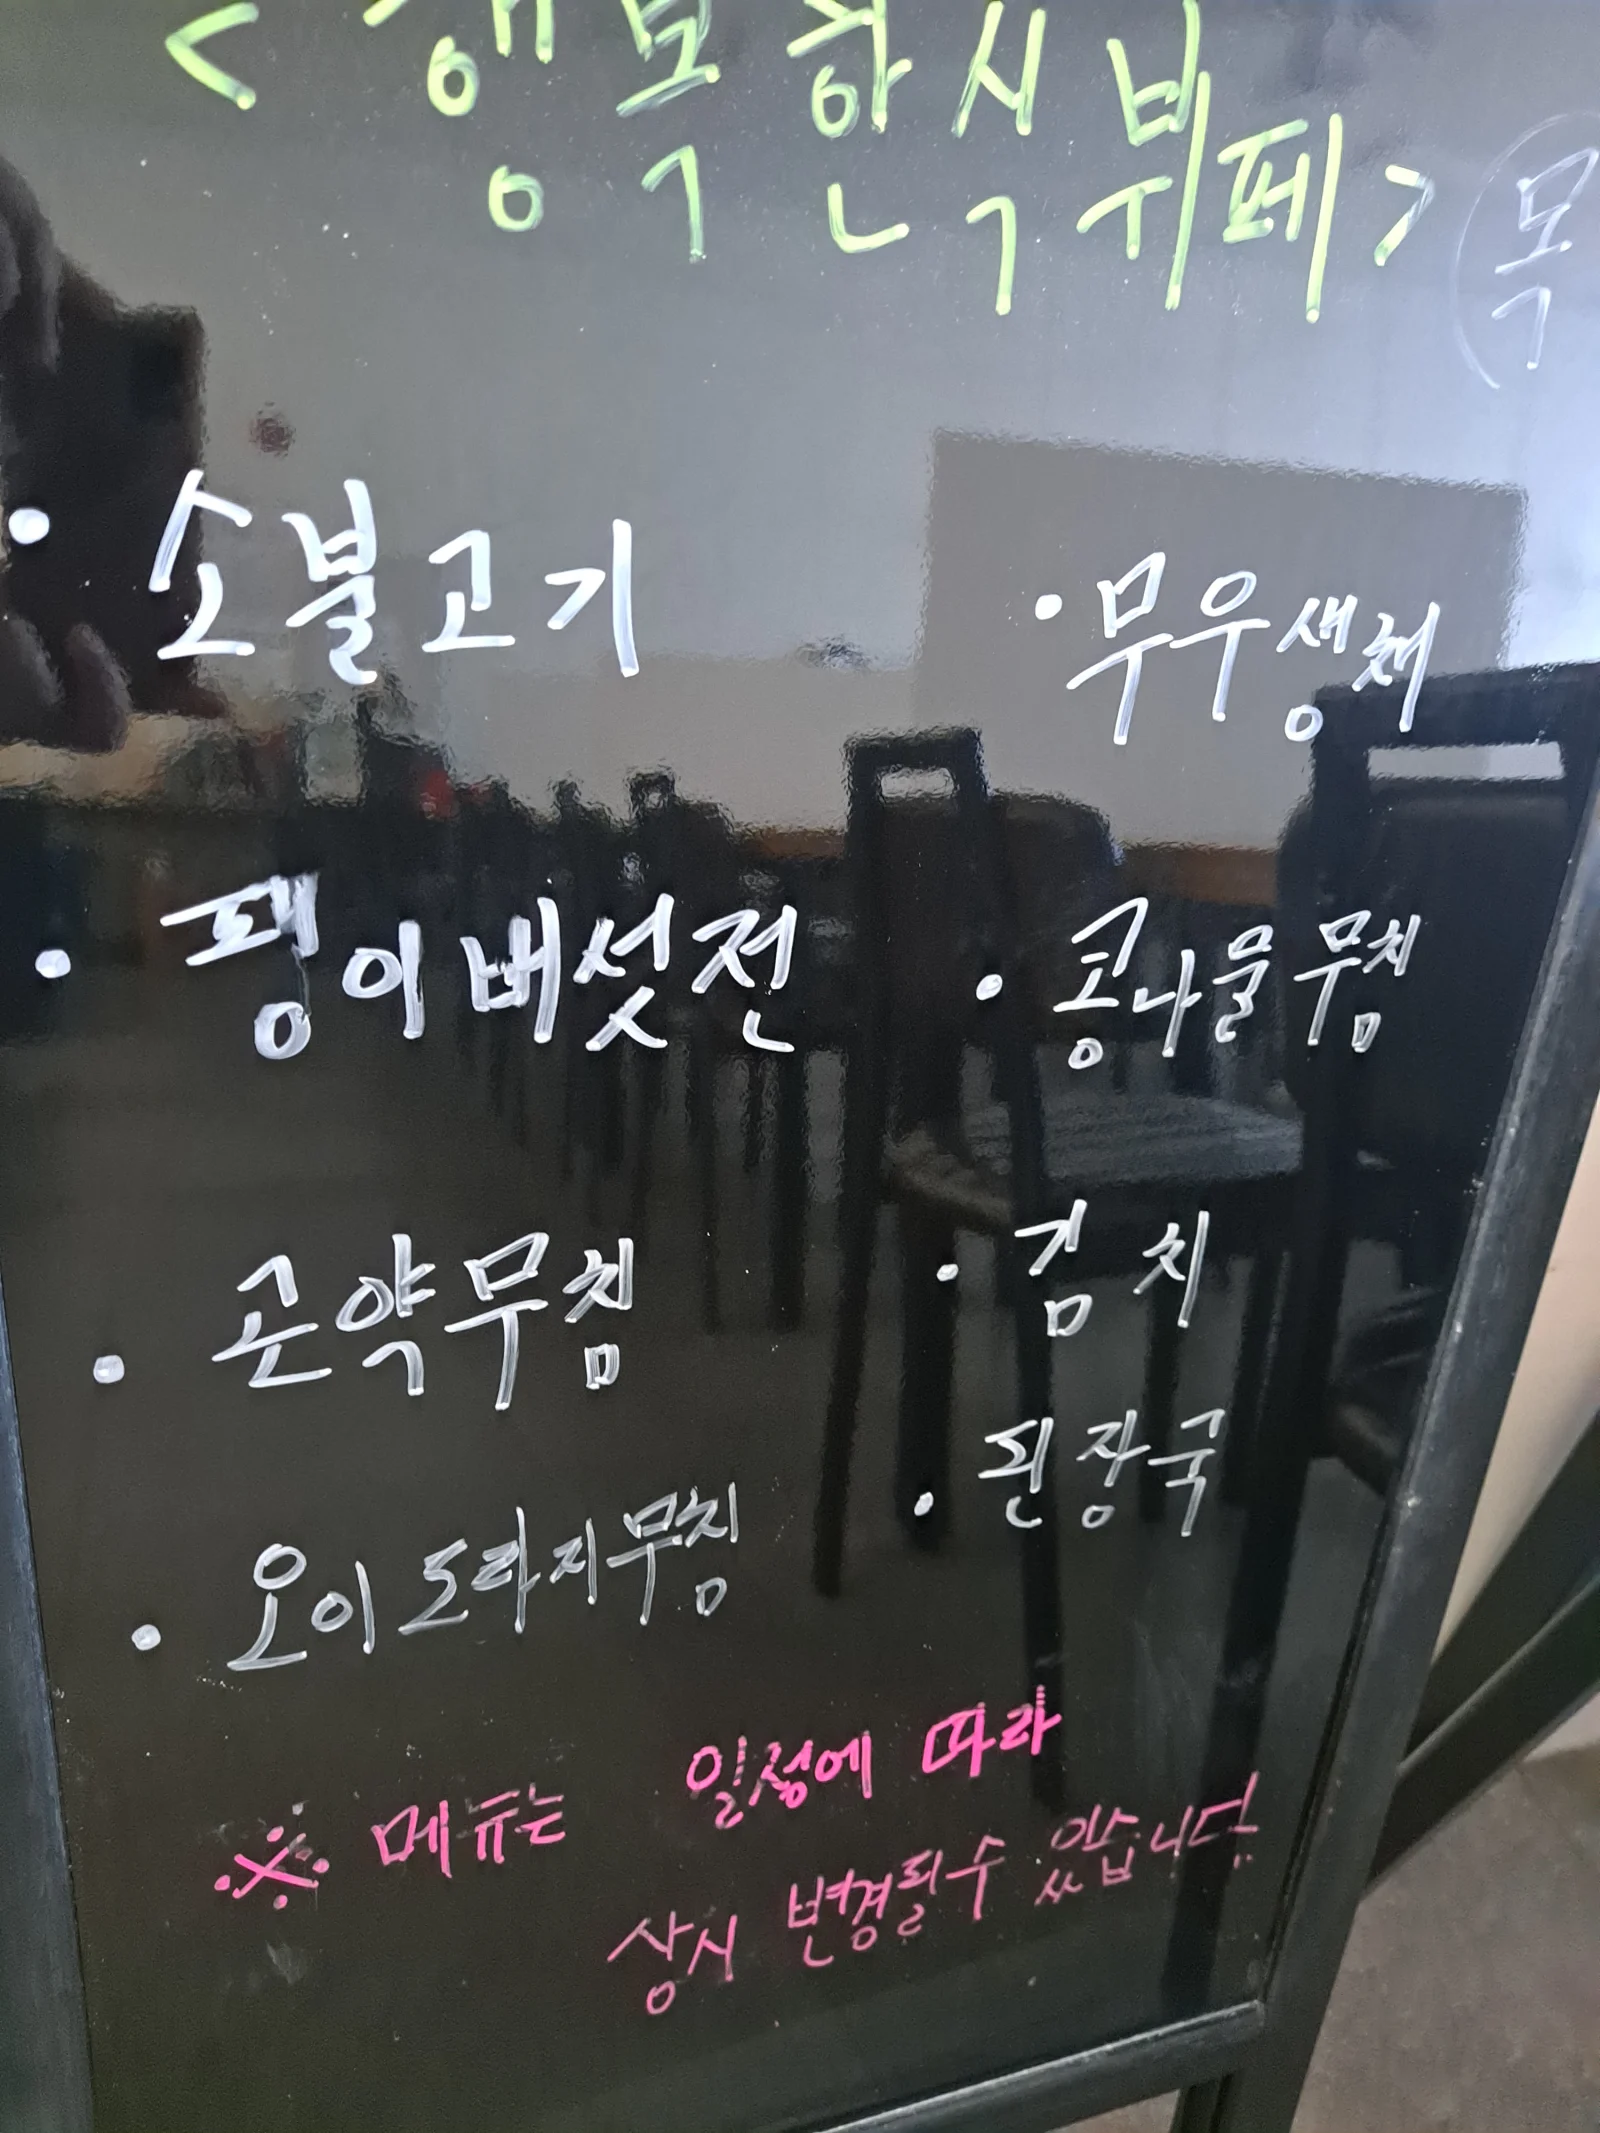 <행복한식뷔페>
목
• 소불고기
• 무우생채
• 팽이버섯전
• 콩나물무침
• 곤약무침
• 김치
• 된장국
• 오이도라지무침
※ 메뉴는 일정에 따라
상시 변경될수 있습니다.